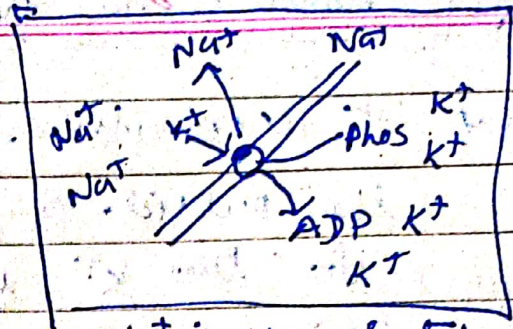 Na+ Na+
Na+ K+ K+
Phos K+
Na+
ADP K+
K+